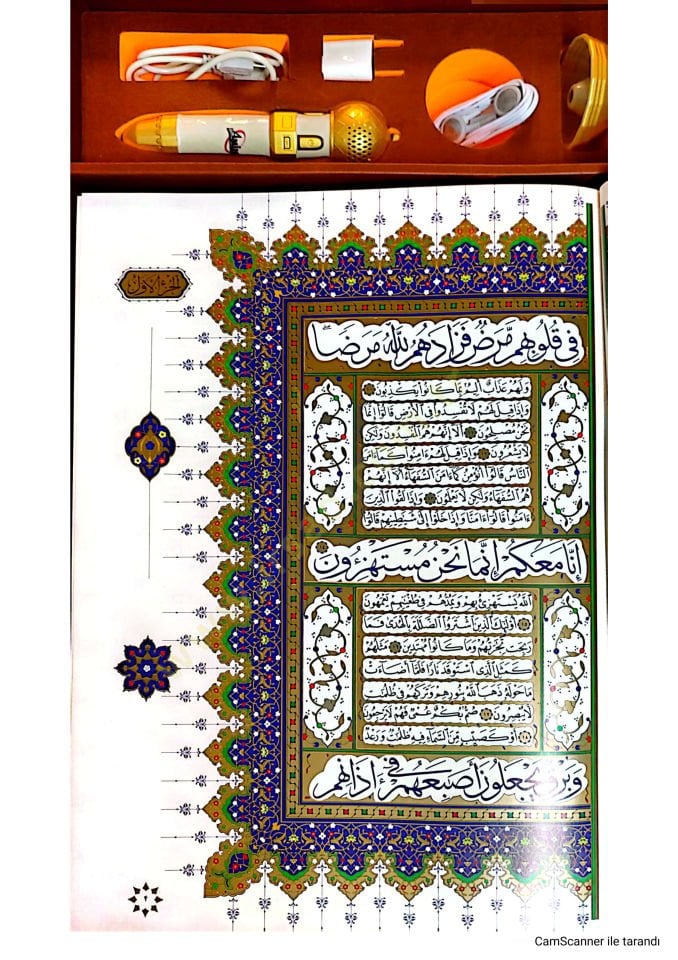 الجزء الأول
فِى قُلُوبِهِم مَّرَضٌ فَزَادَهُمُ ٱللَّهُ مَرَضًا
وَلَهُمْ عَذَابٌ أَلِيمٌ بِمَا كَانُوا۟ يَكْذِبُونَ
وَإِذَا قِيلَ لَهُمْ لَا تُفْسِدُوا۟ فِى ٱلْأَرْضِ قَالُوٓا۟ إِنَّمَا
نَحْنُ مُصْلِحُونَ أَلَآ إِنَّهُمْ هُمُ ٱلْمُفْسِدُونَ وَلَٰكِن
لَّا يَشْعُرُونَ وَإِذَا قِيلَ لَهُمْ ءَامِنُوا۟ كَمَآ ءَامَنَ
ٱلنَّاسُ قَالُوٓا۟ أَنُؤْمِنُ كَمَآ ءَامَنَ ٱلسُّفَهَآءُ أَلَآ إِنَّهُمْ
هُمُ ٱلسُّفَهَآءُ وَلَٰكِن لَّا يَعْلَمُونَ وَإِذَا لَقُوا۟ ٱلَّذِينَ
ءَامَنُوا۟ قَالُوٓا۟ ءَامَنَّا وَإِذَا خَلَوْا۟ إِلَىٰ شَيَٰطِينِهِمْ قَالُوٓا۟
إِنَّا مَعَكُمْ إِنَّمَا نَحْنُ مُسْتَهْزِءُونَ
ٱللَّهُ يَسْتَهْزِئُ بِهِمْ وَيَمُدُّهُمْ فِى طُغْيَٰنِهِمْ يَعْمَهُونَ
أُو۟لَٰٓئِكَ ٱلَّذِينَ ٱشْتَرَوُا۟ ٱلضَّلَٰلَةَ بِٱلْهُدَىٰ فَمَا
رَبِحَت تِّجَٰرَتُهُمْ وَمَا كَانُوا۟ مُهْتَدِينَ مَثَلُهُمْ
كَمَثَلِ ٱلَّذِى ٱسْتَوْقَدَ نَارًا فَلَمَّآ أَضَآءَتْ
مَا حَوْلَهُۥ ذَهَبَ ٱللَّهُ بِنُورِهِمْ وَتَرَكَهُمْ فِى ظُلُمَٰتٍ
لَّا يُبْصِرُونَ صُمٌّۢ بُكْمٌ عُمْىٌ فَهُمْ لَا يَرْجِعُونَ
أَوْ كَصَيِّبٍ مِّنَ ٱلسَّمَآءِ فِيهِ ظُلُمَٰتٌ وَرَعْدٌ
وَبَرْقٌ يَجْعَلُونَ أَصَٰبِعَهُمْ فِىٓ ءَاذَانِهِم
CamScanner ile tarandı